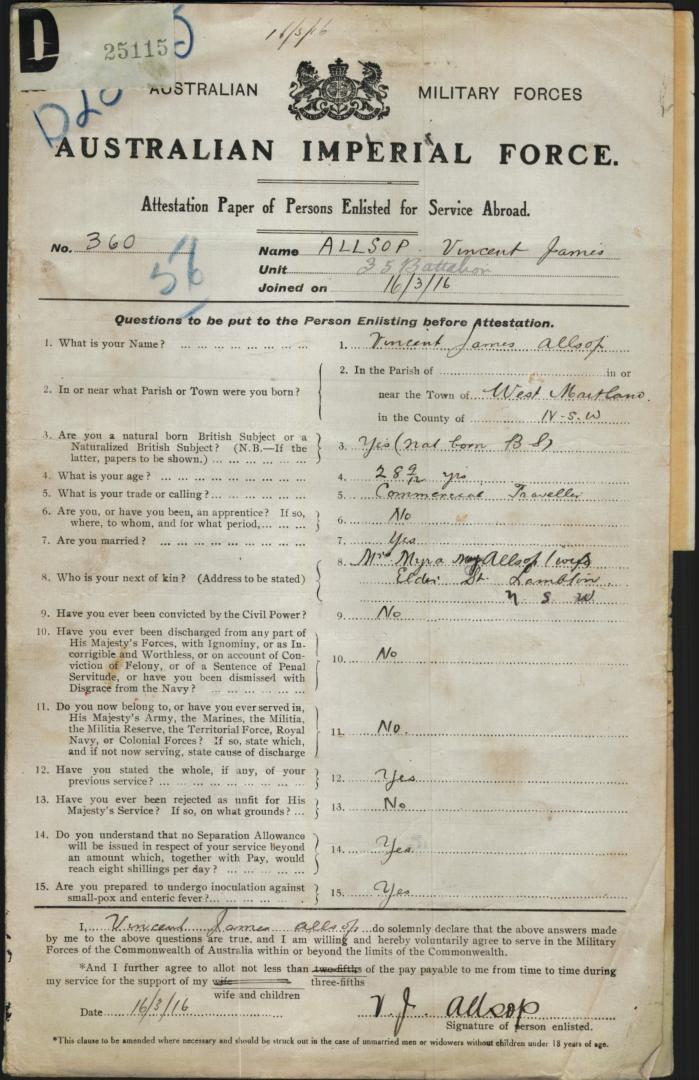 16/3/16
D
25115
AUSTRALIAN MILITARY FORCES
AUSTRALIAN IMPERIAL FORCE.
Attestation Paper of Persons Enlisted for Service Abroad.
No. 360
56
Name ALLSOP Vincent James
Unit 35 Battalion
Joined on 16/3/16
Questions to be put to the Person Enlisting before Attestation.
1. What is your Name? ... ... ... ... ... ... ... 1. Vincent James Allsop
2. In or near what Parish or Town were you born?
2. In the Parish of ........ in or
near the Town of West Maitland
in the County of N.S.W
3. Are you a natural born British Subject or a
Naturalized British Subject? (N.B.—If the
latter, papers to be shown.) ... ... ... ... ...
3. Yes (nat born B S)
4. What is your age? ... ... ... ... ... ... ... 4. 28 9/12 yrs
5. What is your trade or calling? ... ... ... ... ... 5. Commercial Traveller
6. Are you, or have you been, an apprentice? If so,
where, to whom, and for what period, ... ... ...
6. No
7. Are you married? ... ... ... ... ... ... ... 7. Yes
8. Who is your next of kin? (Address to be stated)
8. Mrs Myra Allsop (wife)
Elder St Lambton
N S W
9. Have you ever been convicted by the Civil Power? 9. No
10. Have you ever been discharged from any part of
His Majesty's Forces, with Ignominy, or as In-
corrigible and Worthless, or on account of Con-
viction of Felony, or of a Sentence of Penal
Servitude, or have you been dismissed with
Disgrace from the Navy? ... ... ... ... ...
10. No
11. Do you now belong to, or have you ever served in,
His Majesty's Army, the Marines, the Militia,
the Militia Reserve, the Territorial Force, Royal
Navy, or Colonial Forces? If so, state which,
and if not now serving, state cause of discharge
11. No.
12. Have you stated the whole, if any, of your
previous service? ... ... ... ... ... ... ...
12. Yes
13. Have you ever been rejected as unfit for His
Majesty's Service? If so, on what grounds? ...
13. No
14. Do you understand that no Separation Allowance
will be issued in respect of your service beyond
an amount which, together with Pay, would
reach eight shillings per day? ... ... ... ...
14. Yes
15. Are you prepared to undergo inoculation against
small-pox and enteric fever? ... ... ... ... ...
15. Yes
I, Vincent James Allsop do solemnly declare that the above answers made
by me to the above questions are true, and I am willing and hereby voluntarily agree to serve in the Military
Forces of the Commonwealth of Australia within or beyond the limits of the Commonwealth.
*And I further agree to allot not less than two-fifths of the pay payable to me from time to time during
three-fifths
my service for the support of my wife
wife and children
Date 16/3/16
V J Allsop
Signature of person enlisted.
*This clause to be amended where necessary and should be struck out in the case of unmarried men or widowers without children under 18 years of age.